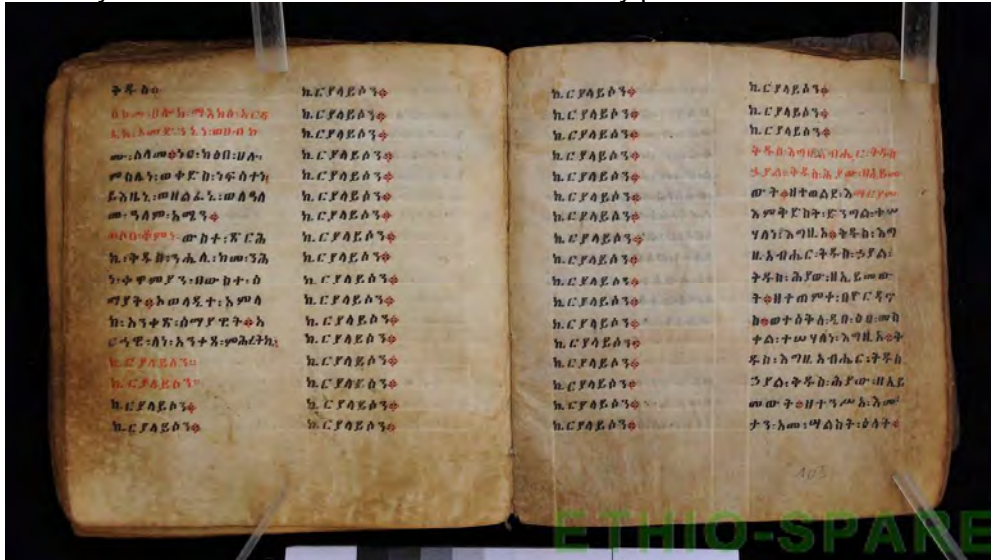 ቅዱስ።
በከመ፡ሀሎከ፡ማእከለ፡አርዳ
ኢከ፡ኦመድኃኒነ፡ወሀብከ
ሙ፡ሰላመ።ነዓ፡ክዕበ፡ሀሉ፡
ምስሌነ፡ወቀድስ፡ነፍሳተነ፡
ይእዜኒ፡ወዘልፈኒ፡ወለዓለ
መ፡ዓለም፡አሜን።
ወሶበ፡ቆምነ፡ውስተ፡ጽርሕ
ከ፡ቅዱስ፡ንሔሊ፡ከመ፡ንሕ
ነ፡ቀዋምያን፡በውስተ፡ሰ
ማያት።ኦወላዲተ፡አምላ
ክ፡አንቀጸ፡ሰማያዊት።አ
ርኅዊ፡ለነ፡አንቀጸ፡ምሕረትኪ፡
ኪርያላይሶን።
ኪርያላይሶን።
ኪርያላይሶን።
ኪርያላይሶን።
ኪርያላይሶን።
ኪርያላይሶን።
ኪርያላይሶን።
ኪርያላይሶን።
ኪርያላይሶን።
ኪርያላይሶን።
ኪርያላይሶን።
ኪርያላይሶን።
ኪርያላይሶን።
ኪርያላይሶን።
ኪርያላይሶን።
ኪርያላይሶን።
ኪርያላይሶን።
ኪርያላይሶን።
ኪርያላይሶን።
ኪርያላይሶን።
ኪርያላይሶን።
ኪርያላይሶን።
ኪርያላይሶን።
ኪርያላይሶን።
ኪርያላይሶን።
ኪርያላይሶን።
ኪርያላይሶን።
ኪርያላይሶን።
ኪርያላይሶን።
ኪርያላይሶን።
ኪርያላይሶን።
ኪርያላይሶን።
ኪርያላይሶን።
ኪርያላይሶን።
ኪርያላይሶን።
ኪርያላይሶን።
ኪርያላይሶን።
ኪርያላይሶን።
ኪርያላይሶን።
ኪርያላይሶን።
ኪርያላይሶን።
ቅዱስ፡እግዚአብሔር፡ቅዱስ
ኃያል፡ቅዱስ፡ሕያው፡ዘኢይመ
ውት።ዘተወልደ፡እማርያም
እምቅድስት፡ድንግል፡ተሣ
ሃለነ፡እግዚኦ።ቅዱስ፡እግ
ዚአብሔር፡ቅዱስ፡ኃያል፡
ቅዱስ፡ሕያው፡ዘኢይመው
ት።ዘተጠምቀ፡በዮርዳኖ
ስ።ወተሰቅለ፡ዲበ፡ዕፀ፡መስ
ቀል፡ተሣሃለነ፡እግዚኦ።ቅ
ዱስ፡እግዚአብሔር፡ቅዱስ
ኃያል፡ቅዱስ፡ሕያው፡ዘኢይ
መውት።ዘተንሥአ፡እሙ
ታን፡አመ፡ሣልስት፡ዕለት።
103
ETHIO-SPARE